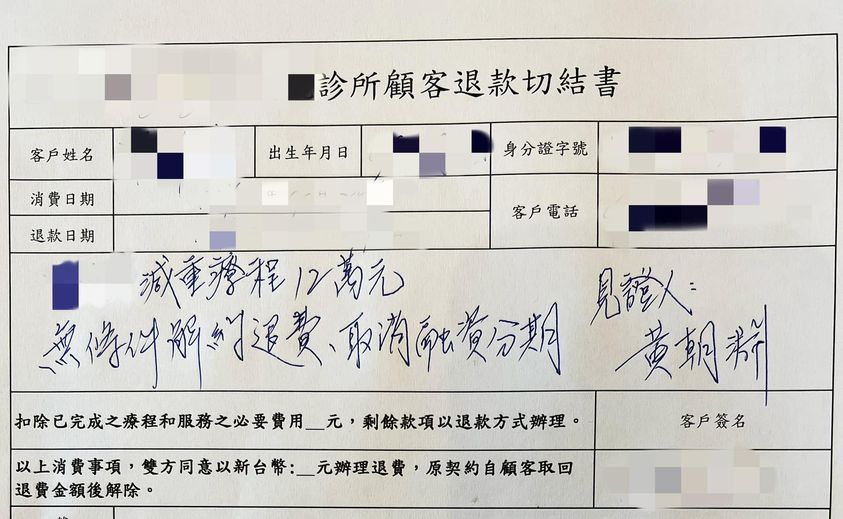 診所顧客退款切結書
客戶姓名
出生年月日
身分證字號
消費日期
客戶電話
退款日期
減重療程12萬元
無條件解約退費、取消融資分期
見證人:
黃朝淵
扣除已完成之療程和服務之必要費用__元，剩餘款項以退款方式辦理。
客戶簽名
以上消費事項，雙方同意以新台幣:__元辦理退費，原契約自顧客取回
退費金額後解除。